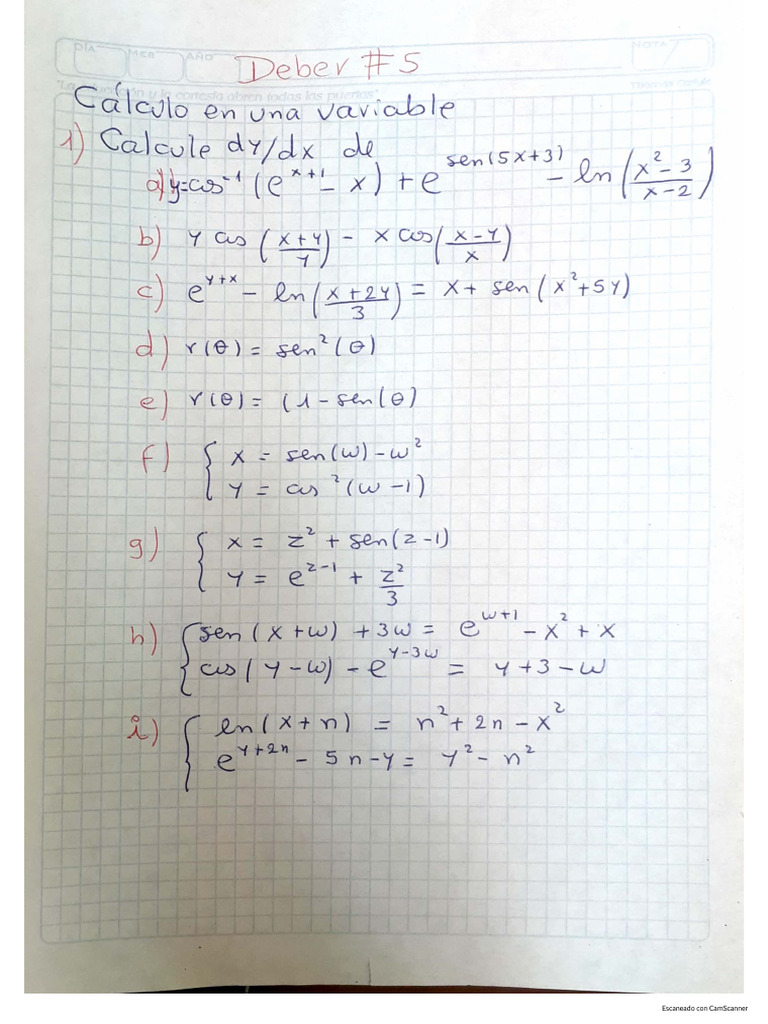 DÍA MES AÑO Deber #5 NOTA
Cálculo en una variable
1) Calcule dy/dx de
a) y=cos⁻¹(e^(x+1) - x) + e^(sen(5x+3)) - ln((x²-3)/(x-2))
b) y cos((x+y)/y) - x cos((x-y)/x)
c) e^(y+x) - ln((x+2y)/3) = x + sen(x²+5y)
d) r(θ) = sen²(θ)
e) r(θ) = (1-sen(θ)
f) { x = sen(w) - w²
y = cos²(w-1)
g) { x = z² + sen(z-1)
y = e^(z-1) + z²/3
h) { sen(x+w) + 3w = e^(w+1) - x² + x
cos(y-w) - e^(y-3w) = y+3-w
i) { ln(x+n) = n²+2n-x²
e^(y+2n) - 5n-y = y²-n²
Escaneado con CamScanner